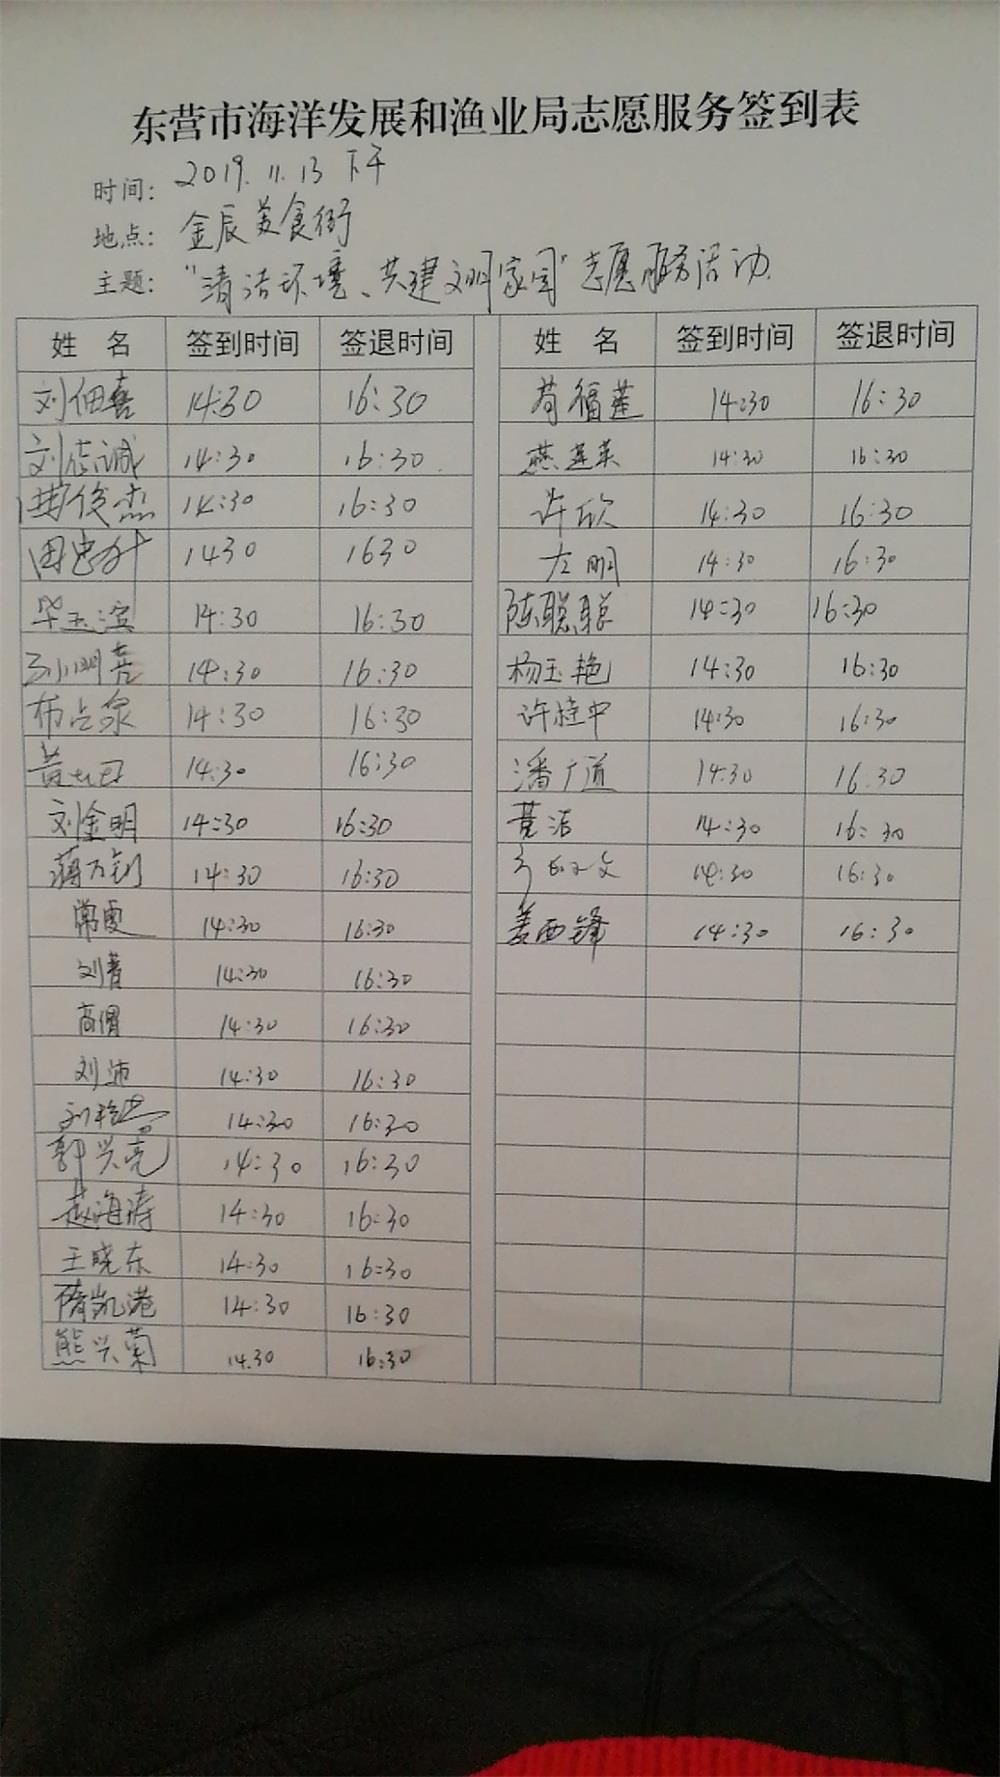 东营市海洋发展和渔业局志愿服务签到表
时间：2019.11.13 下午
地点：金辰美食街
主题："清洁环境、共建文明家园"志愿服务活动.
姓 名 签到时间 签退时间 姓 名 签到时间 签退时间
刘佃喜 14:30 16:30 苟福莲 14:30 16:30
刘志诚 14:30 16:30 燕莲英 14:30 16:30
俊杰 14:30 16:30 许欣 14:30 16:30
田忠升 1430 1630 左明 14:30 16:30
毕玉滨 14:30 16:30 陈聪聪 14:30 16:30
孙明亮 14:30 16:30 杨玉艳 14:30 16:30
布占泉 14:30 16:30 许桂中 14:30 16:30
黄 14:30 16:30 潘广道 14:30 16.30
刘金明 14:30 16:30 黄洁 14:30 16:30
蒋万钊 14:30 16:30 文 14:30 16:30
常霞 14:30 16:30 姜西锋 14:30 16:30
刘青 14:30 16:30
高倩 14:30 16:30
刘沛 14:30 16:30
刘艳 14:30 16:30
郭兴亮 14:30 16:30
赵海涛 14:30 16:30
王晓东 14:30 16:30
隋凯港 14:30 16:30
熊兴菊 14.30 16:30